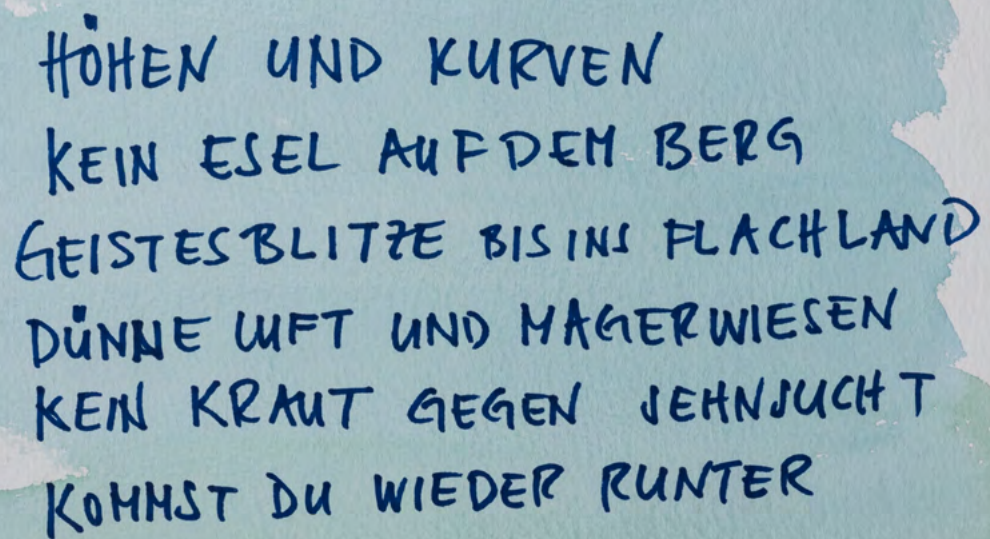 HÖHEN UND KURVEN
KEIN ESEL AUF DEM BERG
GEISTESBLITZE BIS INS FLACHLAND
DÜNNE LUFT UND MAGERWIESEN
KEIN KRAUT GEGEN SEHNSUCHT
KOMMST DU WIEDER RUNTER